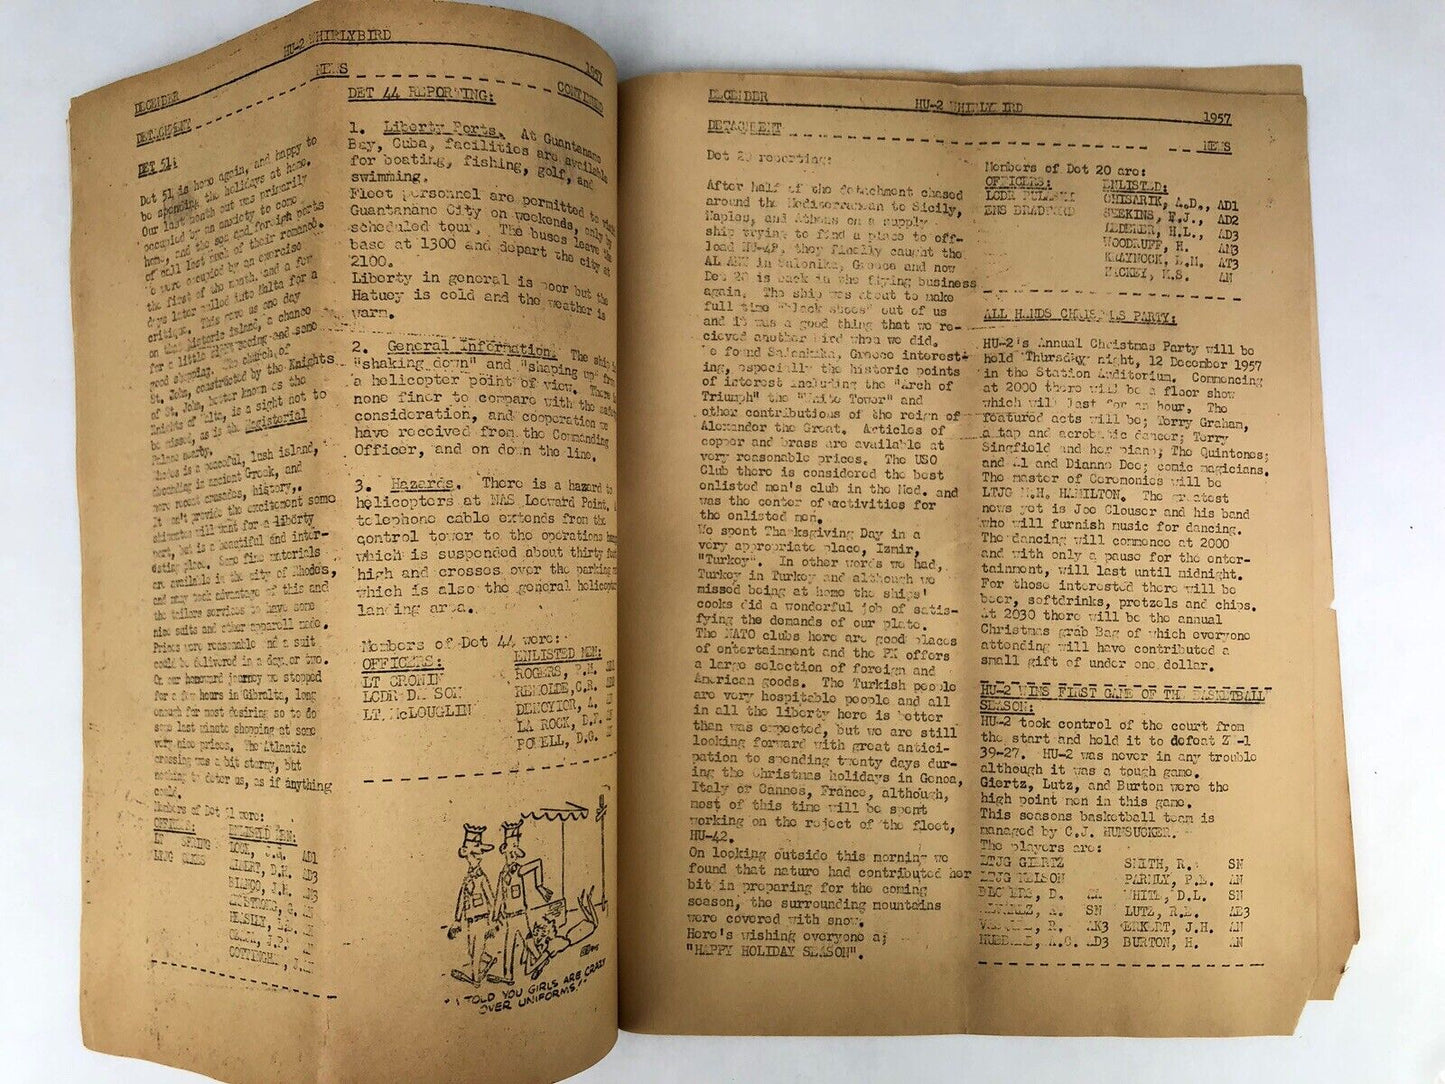 HU-2 WHIRLYBIRD
DECEMBER 1957
DETACHMENT NEWS CONTINUED
DET 51:
Det 51 is home again, and happy to
be spending the holidays at home.
Our last month out was primarily
occupied by an anxiety to come
home, and the sea and foreign ports
of call lost much of their romance.
We were occupied by an exercise
the first of the month and a few
days later pulled into Malta for a
critique. This gave us one day
on that historic island, a chance
for a little sight seeing and some
good shopping. The church of
St. John, constructed by the Knights
of St. John, better known as the
Knights of Malta, is a sight not to
be missed, as is the Magisterial
Palace nearby.
Rhodes is a peaceful, lush island,
abounding in ancient Greek, and
more recent crusades, history.
It don't provide the excitement some
shipmates will want for a liberty
port, but is a beautiful and inter-
esting place. Some fine materials
are available in the city of Rhodes,
and many took advantage of this and
the tailors services to have some
nice suits and other apparell made.
Prices were reasonable and a suit
could be delivered in a day or two.
On our homeward journey we stopped
for a few hours in Gibralta, long
enough for most desiring so to do
some last minute shopping at some
very nice prices. The Atlantic
crossing was a bit stormy, but
nothing to deter us, as if anything
could.
Members of Det 51 were:
OFFICERS: ENLISTED MEN:
LT SPRING AD1
LTJG OAKES AD3
BIANCO, J.H. AN3
ARMSTRONG, G. AN
AN
AN
COTTINGHAM, J.
DET 44 REPORTING:
1. Liberty Ports. At Guantanamo
Bay, Cuba, facilities are available
for boating, fishing, golf, and
swimming.
Fleet personnel are permitted to visit
Guantanamo City on weekends, only by
scheduled tour. The buses leave the
base at 1300 and depart the city at
2100.
Liberty in general is poor but the
Hatuey is cold and the weather is
warm.
2. General Information. The ship is
"shaking down" and "shaping up" from
a helicopter point of view. There is
none finer to compare with the
consideration, and cooperation we
have received from the Commanding
Officer, and on down the line.
3. Hazards. There is a hazard to
helicopters at NAS Leeward Point. A
telephone cable extends from the
control tower to the operations
which is suspended about thirty feet
high and crosses over the parking
which is also the general helicopter
landing area.
Members of Det 44 were:
OFFICERS: ENLISTED MEN:
LT CRONIN ROGERS, P.H.
LCDR DAWSON REMOLDE, C.R.
LT. McLOUGLIN
LA ROCK, D.F.
POWELL, D.G.
"I TOLD YOU GIRLS ARE CRAZY
OVER UNIFORMS!"
DECEMBER HU-2 WHIRLYBIRD 1957
DETACHMENT NEWS
Det 20 reporting:
After half of the detachment chased
around the Mediterranean to Sicily,
Naples, and Athens on a supply
ship trying to find a place to off-
load HU-48, they finally caught the
ALAMO in Salonika, Greece and now
Det 20 is back in the flying business
again. The ship was about to make
full time "Black shoes" out of us
and it was a good thing that we re-
cieved another bird when we did.
We found Salonkika, Greece interest-
ing, especially the historic points
of interest including the "Arch of
Triumph" the "White Tower" and
other contributions of the reign of
Alexander the Great. Articles of
copper and brass are available at
very reasonable prices. The USO
Club there is considered the best
enlisted men's club in the Med. and
was the center of activities for
the enlisted men.
We spent Thanksgiving Day in a
very appropriate place, Izmir,
"Turkey". In other words we had,
Turkey in Turkey and although we
missed being at home the ships'
cooks did a wonderful job of satis-
fying the demands of our plate.
The NATO clubs here are good places
of entertainment and the PX offers
a large selection of foreign and
American goods. The Turkish people
are very hospitable people and all
in all the liberty here is better
than was expected, but we are still
looking forward with great antici-
pation to spending twenty days dur-
ing the Christmas holidays in Genoa,
Italy or Cannes, France, although,
most of this time will be spent
working on the reject of the fleet,
HU-42.
On looking outside this morning we
found that nature had contributed her
bit in preparing for the coming
season, the surrounding mountains
were covered with snow.
Here's wishing everyone a;
"HAPPY HOLIDAY SEASON".
Members of Det 20 are:
OFFICERS: ENLISTED:
LCDR CHISARIK, A.D., AD1
ENS BRADFORD SEEKINS, E.J., AD2
LEDERER, H.L., AD3
WOODRUFF, H. AM3
KRAYNOCK, L.M. AT3
MACKEY, M.S. AN
ALL HANDS CHRISTMAS PARTY:
HU-2's Annual Christmas Party will be
held Thursday night, 12 December 1957
in the Station Auditorium. Commencing
at 2000 there will be a floor show
which will last for an hour. The
featured acts will be; Terry Graham,
a tap and acrobatic dancer; Terry
Singfield and her piano; The Quintones;
and Al and Dianne Dee; comic magicians.
The master of Ceremonies will be
LTJG M.H. HAMILTON. The greatest
news yet is Joe Clouser and his band
who will furnish music for dancing.
The dancing will commence at 2000
and with only a pause for the enter-
tainment, will last until midnight.
For those interested there will be
beer, softdrinks, pretzels and chips.
At 2030 there will be the annual
Christmas grab Bag of which everyone
attending will have contributed a
small gift of under one dollar.
HU-2 WINS FIRST GAME OF THE BASKETBALL
SEASON:
HU-2 took control of the court from
the start and held it to defeat ZW-1
39-27. HU-2 was never in any trouble
although it was a tough game.
Giertz, Lutz, and Burton were the
high point men in this game.
This seasons basketball team is
managed by C.J. HUNSUCKER.
The players are:
LTJG GIERTZ SMITH, R. SN
LTJG NELSON PARMLY, P.E. AN
D. AA WHITE, D.L. SN
ALVAREZ, A. SN LUTZ, R.L. AE3
R. AK3 ERKERT, J.H. AN
A.C. AD3 BURTON, H. AN